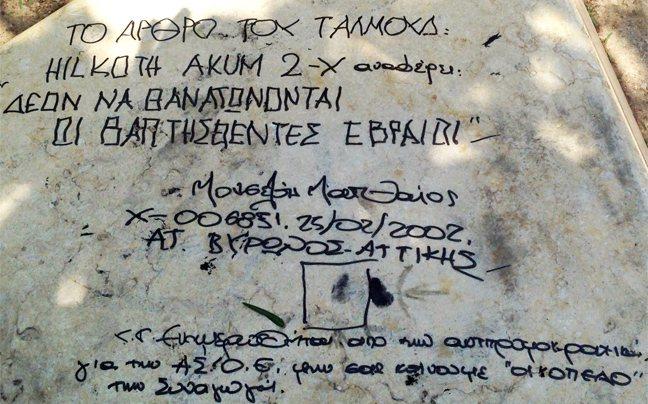 ΤΟ ΑΡΘΡΟ ΤΟΥ ΤΑΛΜΟΥΔ:
HILKOTH AKUM 2-X αναφέρει:
"ΔΕΟΝ ΝΑ ΘΑΝΑΤΩΝΟΝΤΑΙ
ΟΙ ΒΑΠΤΗΣΘΕΝΤΕΣ ΕΒΡΑΙΟΙ"
Ματθαίος
Χ-006851. 25/02/2002.
ΑΤ. ΒΥΡΩΝΟΣ-ΑΤΤΙΚΗΣ
από την
για την ΑΣ.Ο.Ε. μην σας κάνουμε "ΟΙΚΟΠΕΔΟ"
την Συναγωγή.